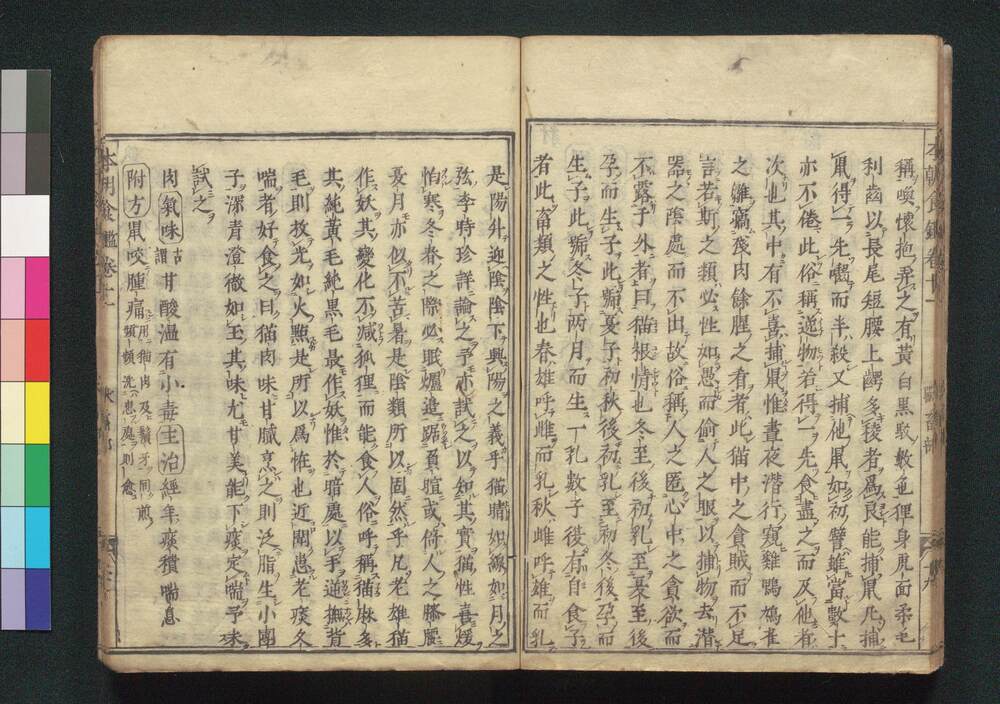 稱喚懷抱弄之有黃白黒駁數色狸身虎面柔毛
利齒以長尾短腰上齶多稜者爲良能捕鼠凡捕
鼠得一先囓而半殺又捕他鼠如初譬雖當數十
亦不倦此俗稱逸物若得一先食盡之而及他者
次也其中有不喜捕鼠惟晝夜潜行窺雞鴨鳩雀
之雛竊殘肉餘腥之者者此猫中之貪賊而不足
言若斯之類必性如愚而偷人之眼以捕物去潜
器之陰處而不出故俗稱人之匿心中之貪欲而
不露于外者曰猫根情也冬至後初乳至夏至後
孕而生子此號夏子初秋後初乳至初冬後孕而
生子此號冬子两月而生一乳數子後有自食子
者此畜類之性也春雄呼雌而乳秋雌呼雄而乳
是陽外迎陰陰下興陽之義乎猫睛如線如月之
弦李時珍詳論之予亦試之以知其實猫性喜煖
怕寒冬春之際必眠爐邉踞負暄或倚人之膝
夏月亦似不苦暑是陰類所以固然乎凡老雄猫
作妖其變化不减狐狸而能食人俗呼稱猫麻多
其純黃毛純黒毛最作妖惟於暗處以手逆撫背
毛則放光如火點是所以爲怪也近聞患老痰冬
喘者好食之曰猫肉味甘膩烹之則泛脂生小團
子深青澄徹如玉其味尤甘美能下痰定喘予未
試之
肉氣味古謂甘酸温有小毒主治經年瘰癧喘息
附方鼠咬腫痛用猫肉及鬚牙同煎頻頻洗患處則愈
本朝食鑑卷十一 獸畜部
本朝食鑑卷十一